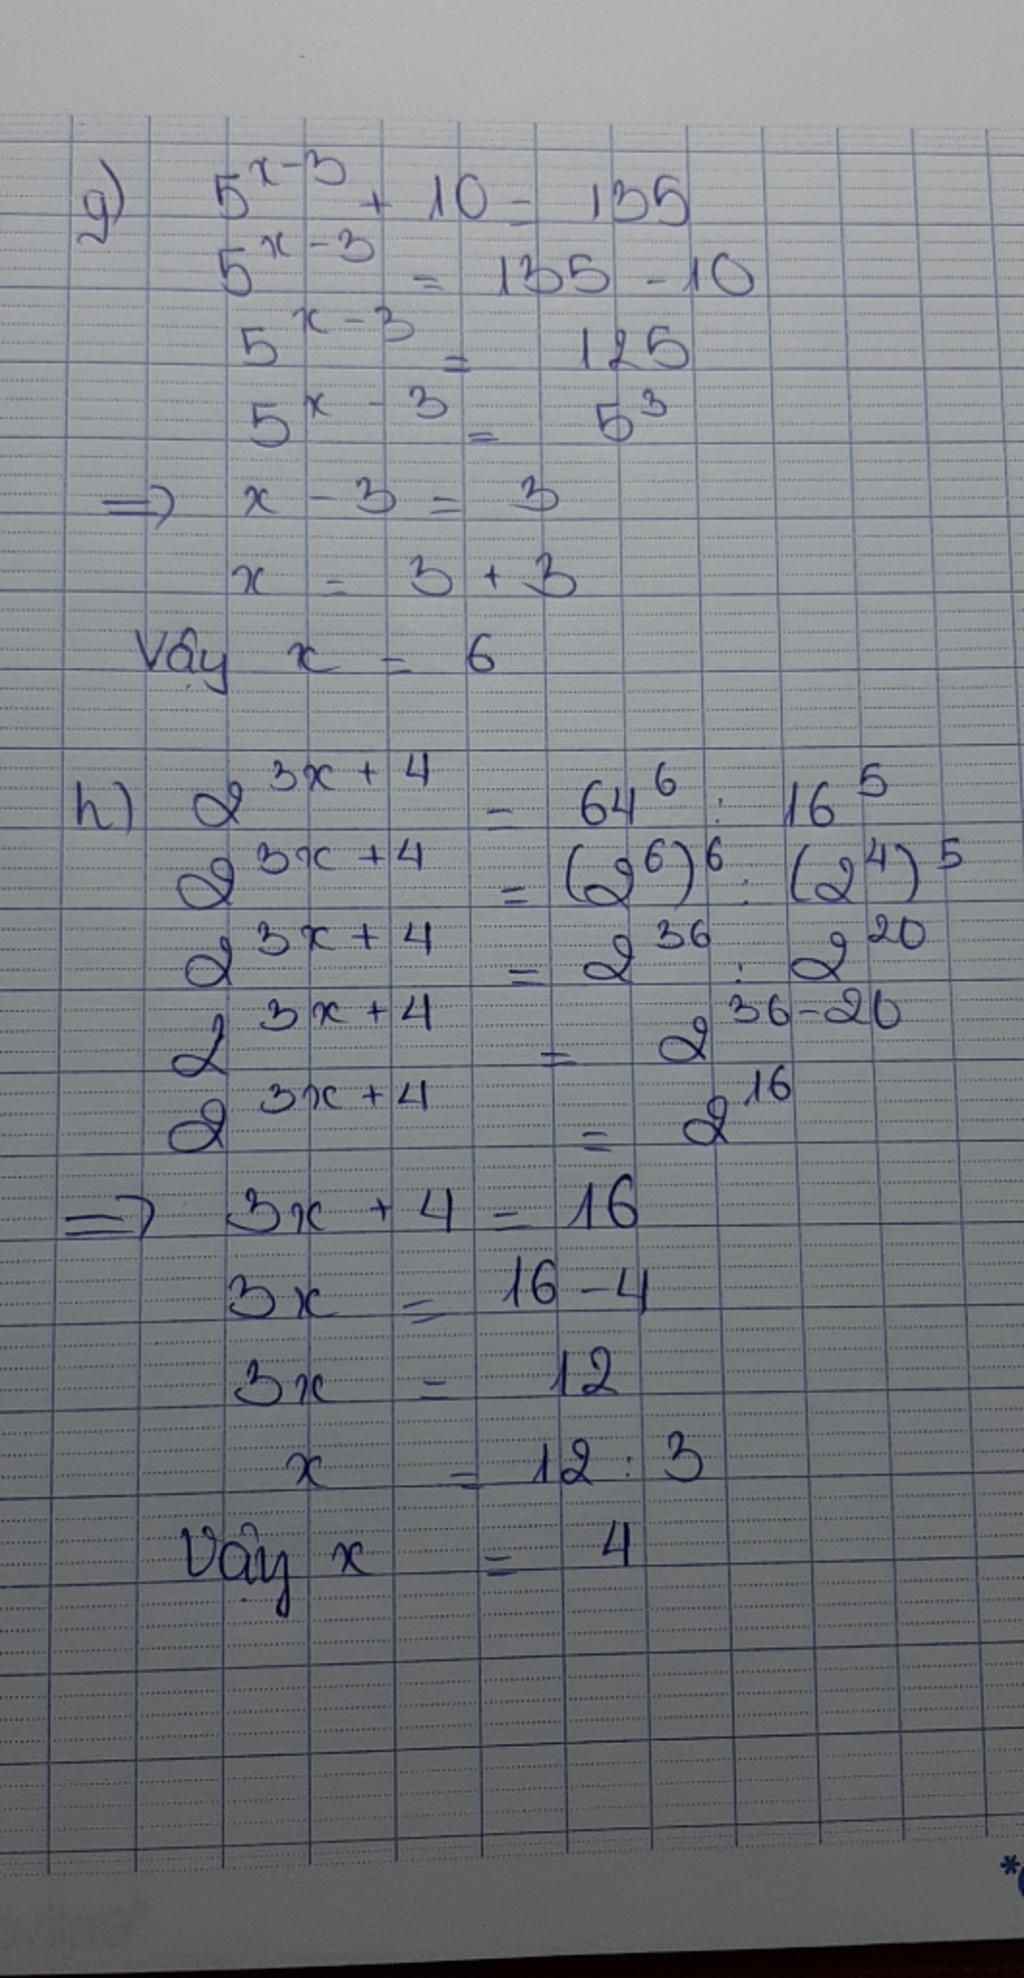 g) 5^{x-3} + 10 = 135
5^{x-3} = 135 - 10
5^{x-3} = 125
5^{x-3} = 5^3
=> x - 3 = 3
x = 3 + 3
Vậy x = 6
h) 2^{3x+4} = 64^6 : 16^5
2^{3x+4} = (2^6)^6 : (2^4)^5
2^{3x+4} = 2^{36} : 2^{20}
2^{3x+4} = 2^{36-20}
2^{3x+4} = 2^{16}
=> 3x + 4 = 16
3x = 16 - 4
3x = 12
x = 12 : 3
Vậy x = 4